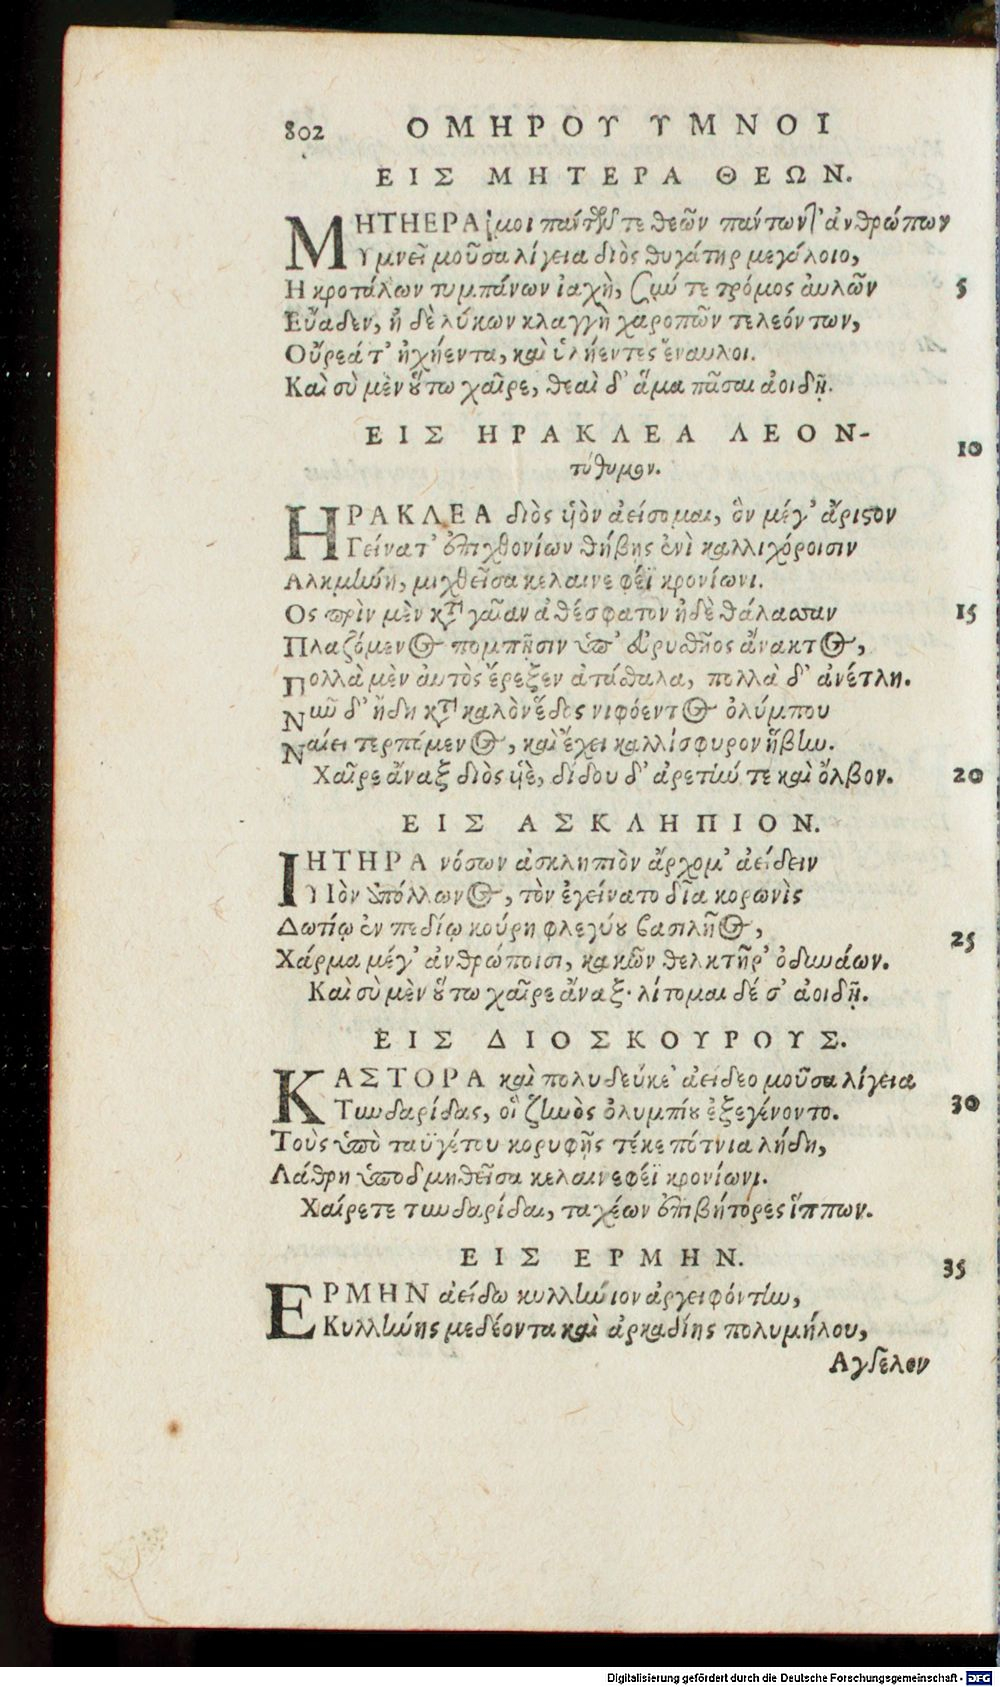 802 ΟΜΗΡΟΥ ΥΜΝΟΙ
ΕΙΣ ΜΗΤΕΡΑ ΘΕΩΝ.
ΜΗΤΗΕΡΑ μοι πάντων τε θεῶν πάντων τ' ἀνθρώπων
Υμνεῖ μοῦσα λίγεια διὸς θυγάτηρ μεγάλοιο,
Η κροτάλων τυμπάνων ἰαχὴ, σύν τε τρόμος ἀυλῶν 5
Εὔαδεν, ἠ δὲ λύκων κλαγγὴ χαροπῶν τε λεόντων,
Οὔρεά τ' ἠχήεντα, καὶ ὑλήεντες ἔναυλοι.
Καὶ σὺ μὲν ὅυτω χαῖρε, θεαὶ δ' ἅμα πᾶσαι ἀοιδῇ.
ΕΙΣ ΗΡΑΚΛΕΑ ΛΕΟΝ- 10
τόθυμον.
ΗΡΑΚΛΕΑ διὸς ὑὸν ἀείσομαι, ὃν μέγ' ἄριστον
Γείνατ' ἐπιχθονίων θήβης ἐνὶ καλλιχόροισιν
Αλκμήνη, μιχθεῖσα κελαινεφέϊ κρονίωνι.
Ος πρὶν μὲν κατὰ γαῖαν ἀθέσφατον ἠδὲ θάλασσαν 15
Πλαζόμενος πομπῇσιν ὑπ' ἐυρυσθῆος ἄνακτος,
Πολλὰ μὲν ἀυτὸς ἔρεξεν ἀτάσθαλα, πολλὰ δ' ἀνέτλη.
Νῦν δ' ἤδη κατὰ καλὸν ἕδος νιφόεντος ὀλύμπου
Ναίει τερπόμενος, καὶ ἔχει καλλίσφυρον ἥβην.
Χαῖρε ἄναξ διὸς ὑὲ, δίδου δ' ἀρετήν τε καὶ ὄλβον. 20
ΕΙΣ ΑΣΚΛΗΠΙΟΝ.
ΙΗΤΗΡΑ νόσων ἀσκληπιὸν ἄρχομ' ἀείδειν
Υἱὸν ἀπόλλωνος, τὸν ἐγείνατο δῖα κορωνὶς
Δωτίῳ ἐν πεδίῳ κούρη φλεγύου βασιλῆος, 25
Χάρμα μέγ' ἀνθρώποισι, κακῶν θελκτῆρ' ὀδυνάων.
Καὶ σὺ μὲν ὅυτω χαῖρε ἄναξ· λίτομαι δέ σ' ἀοιδῇ.
ΕΙΣ ΔΙΟΣΚΟΥΡΟΥΣ.
ΚΑΣΤΟΡΑ καὶ πολυδεύκε' ἀείδεο μοῦσα λίγεια
Τυνδαρίδας, οἳ ζηνὸς ὀλυμπίου ἐξεγένοντο. 30
Τοὺς ὑπὸ ταϋγέτου κορυφῇς τέκε πότνια λήδη,
Λάθρη ὑποδμηθεῖσα κελαινεφέϊ κρονίωνι.
Χαίρετε τυνδαρίδαι, ταχέων ἐπιβήτορες ἵππων.
ΕΙΣ ΕΡΜΗΝ. 35
ΕΡΜΗΝ ἀείδω κυλλήνιον ἀργειφόντην,
Κυλλήνης μεδέοντα καὶ ἀρκαδίης πολυμήλου,
Αγγελον
Digitalisierung gefördert durch die Deutsche Forschungsgemeinschaft - DFG